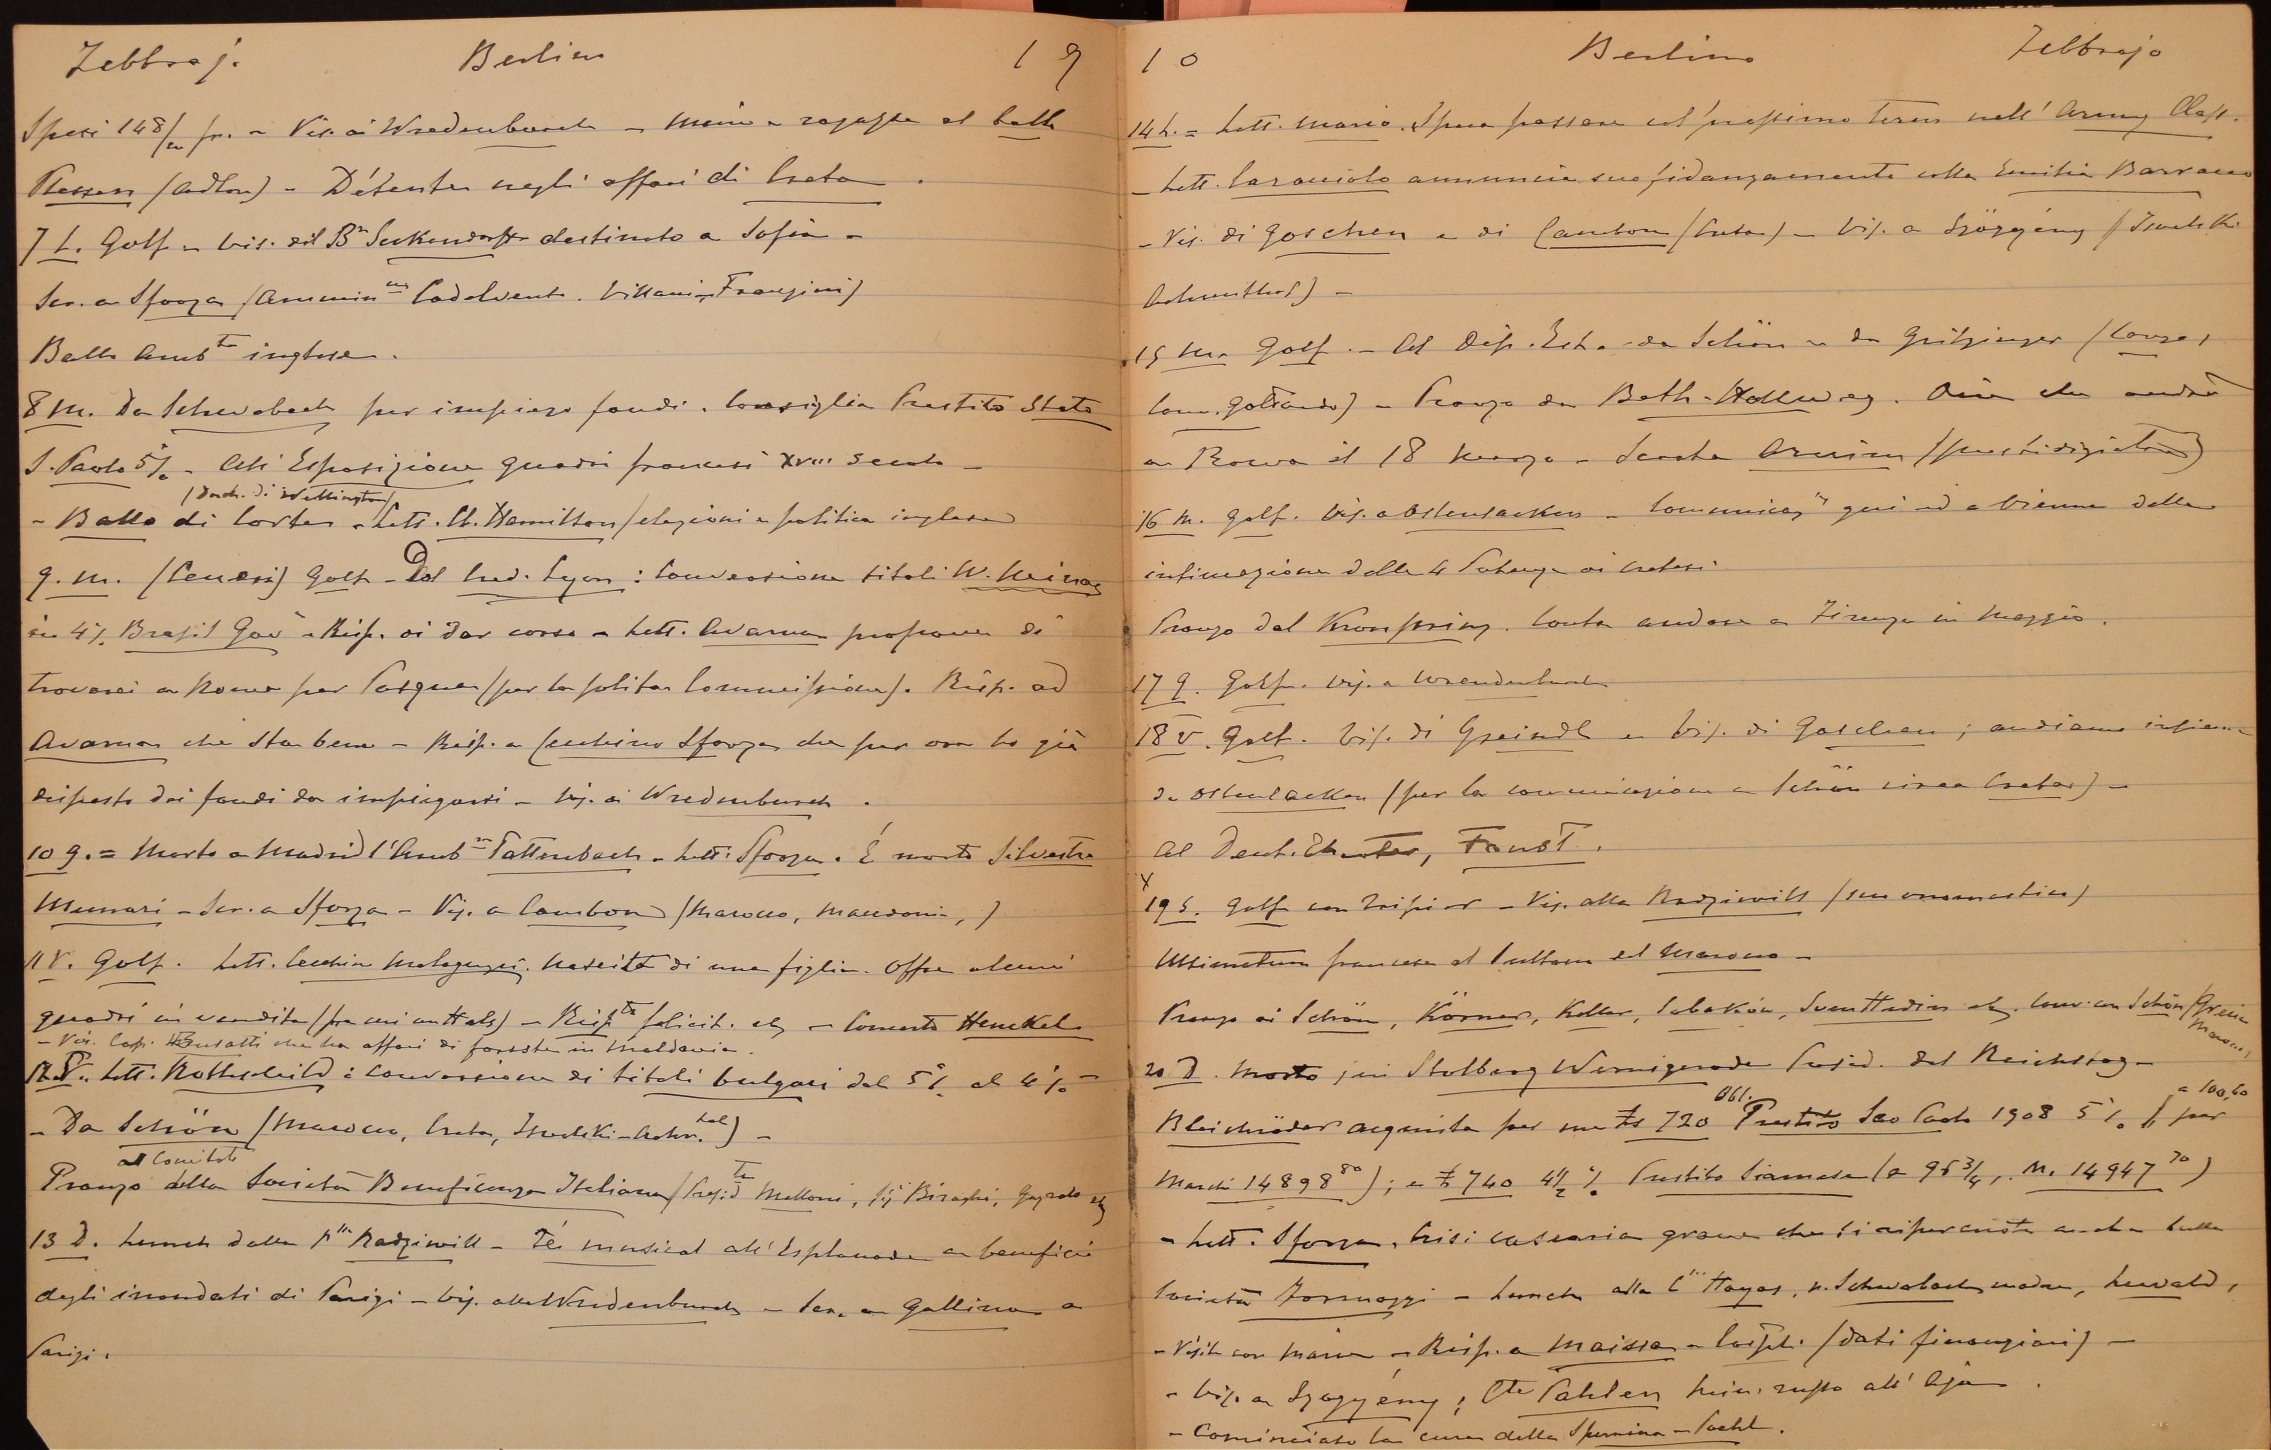 Febbraj. Berlino 19
Spesi 148/m fr. - Vis. ai Wredenburch - Maria e ragazze al ballo
Plessen (Adlon) - Détente negli affari di Creta.
7 L. Golf - Vis. del Bn Seckendorff destinato a Sofia -
Scr. a Sforza (Ammin ne Cadelvent. Villani, Frangini)
Ballo Amb ta inglese.
8 M. Da Schwabach per impiego fondi. Consiglia Prestito Stato
S. Paolo 5% - All' Esposizione quadri francesi XVIII secolo -
(Duch. di Wellington)
- Ballo di Corte. - Lett. Cl. Hamilton (elezioni e politica inglese)
9. M. (Ceneri) Golf - Dal Cred. Lyon: Conversione titoli W. Minas
in 4% Brasil Gov t - Risp. di dar corso - Lett. Avarna propone di
trovarci a Roma per Pasqua (per la solita Commissione). Risp. ad
Avarna che sta bene - Risp. a Cecchino Sforza che per ora ho già
disposto dei fondi da impiegarsi - Vis. ai Wredenburch.
10 G. = Morto a Madrid l'Amb re Tattenbach - Lett. Sforza. È morto Silvestro
Munari - Scr. a Sforza - Vis. a Cambon (Marocco, Macedonia,)
11 V. Golf. Lett. Cecchin Malaguzzi. Nascita di una figlia. Offre alcuni
quadri in vendita (fra cui un Hals) - Risp ta felicit. etc - Concerto Henckel
- Vis. Cap. Busatti che ha affari di foreste in Moldavia.
12 S. Lett. Rothschild: conversione di titoli bulgari dal 5% al 4½% -
- Da Schön (Marocco, Creta, Iswolski-Aehr. thal) -
al Comitato
Pranzo della Società Beneficenza Italiana (Presid te Melloni, Sig. Biraghi, etc
13 D. Lunch dalla P ssa Radziwill - Té musical all' Esplanade a beneficio
degli inondati di Parigi - Vis. alle Wredenburch - Scr. a Gallina a
Parigi.
10 Berlino Febbrajo
14 L. = Lett. Mario. Spera passare col prossimo term nell' Army Class.
- Lett. Caracciolo annuncia suo fidanzamento colla Emilia Barracco
- Vis. di Goschen e di Cambon (Creta) - Vis. a Szögyény (Iswolski
Aehrenthal) -
15 M. Golf. - Al Dip. Est. da Schön e da Gritzinger (Congo,
Conv. Gottardo) - Pranzo da Beth-Hollweg. Dice che andrà
a Roma il 18 Marzo - Serata Arnim (prestidigitatore)
16 M. Golf. Vis. a Ostensacken - Comunicaz ne qui ed a Vienna della
intimazione delle 4 Potenze ai Cretesi.
Pranzo dal Kronprinz. Conta andare a Firenze in Maggio.
17 G. Golf. Vis. a Wrendenburch
18 V. Golf. Vis. di Greindl e Vis. di Goschen; andiamo insieme
da Ostensacken (per la comunicazione a Schön circa Creta) -
Al Deut. Theater, Faust.
x
19 S. Golf con - Vis. alla Radziwill (suo onomastico)
Ultimatum francese al Sultano del Marocco -
Pranzo ai Schön, Körner, Keller, Sebakin, Sven Hedin etc. Conv. con Schön (Grecia
Marocco)
20 D. Morto jeri Stolberg Wernigerode Presid. del Reichstag -
Bleichröder acquista per me £s 720 Obl. Prestito Sao Paolo 1908 5% (a 100,60 per
Marchi 14898 80); e £ 740 4½% Prestito Siamese (a 95¾, M. 14947 70)
- Lett. Sforza. Crisi casearia grave che si ripercuote anche sulla
Società Formaggi - Lunch alla C ssa Hayos, v. Schwabach madre, Lewald,
- Visite con Maria - Risp. a Maissa - (dati finanziari) -
- Vis. a Szögyény; Cte Pahlen Min. russo all' Aja.
- Cominciato la cura della Spermina-Poehl.